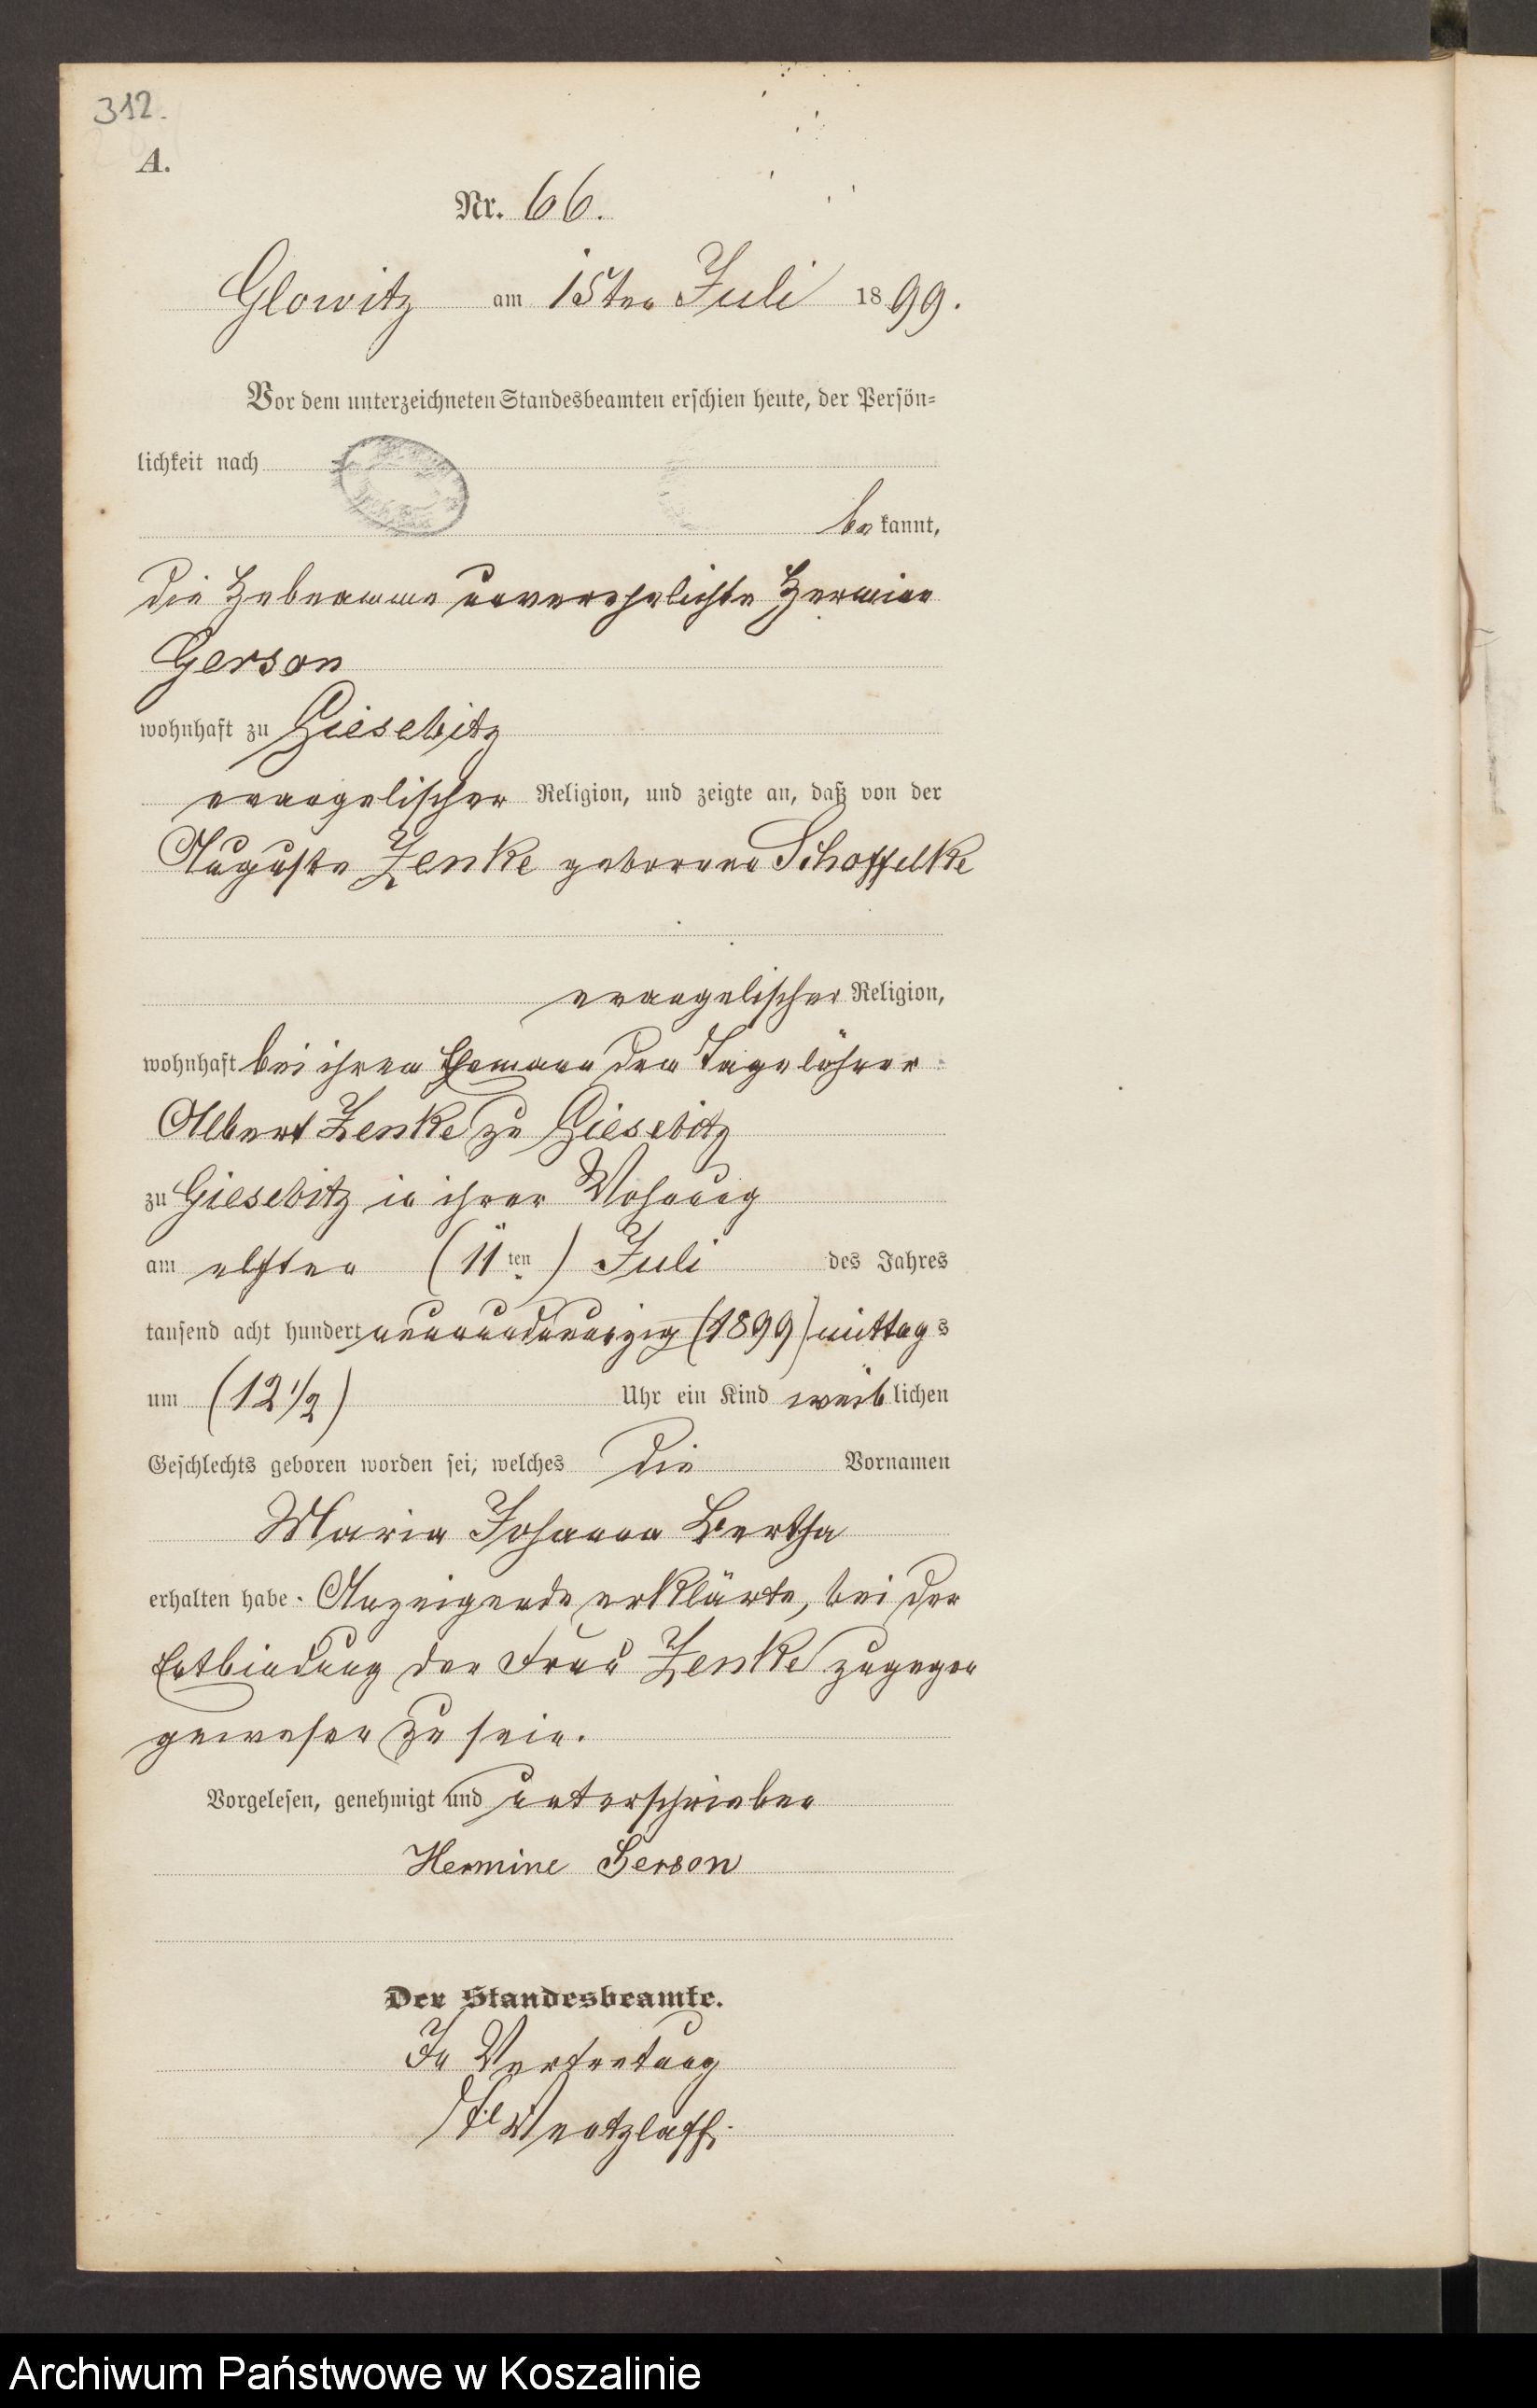 312.
A.
Nr. 66.
Glowitz am 15ten Juli 1899.
Vor dem unterzeichneten Standesbeamten erschien heute, der Persön-
lichkeit nach
bekannt,
die Hebeamme unverehelichte Hermine
Gerson
wohnhaft zu Giesebitz
evangelischer Religion, und zeigte an, daß von der
Auguste Zenke geborene Schoffelke
evangelischer Religion,
wohnhaft bei ihren Ehemann den Tagelöhner
Albert Zenke zu Giesebitz
zu Giesebitz in ihrer Wohnung
am elften (11ten) Juli des Jahres
tausend acht hundert neunundneunzig (1899) mittags
um (12 1/2) Uhr ein Kind weiblichen
Geschlechts geboren worden sei, welches die Vornamen
Maria Johanna Bertha
erhalten habe. Anzeigende erklärte, bei der
Entbindung der Frau Zenke zugegen
gewesen zu sein.
Vorgelesen, genehmigt und unterschrieben
Hermine Gerson
Der Standesbeamte.
In Vertretung
Wentzlaff.
Archiwum Państwowe w Koszalinie